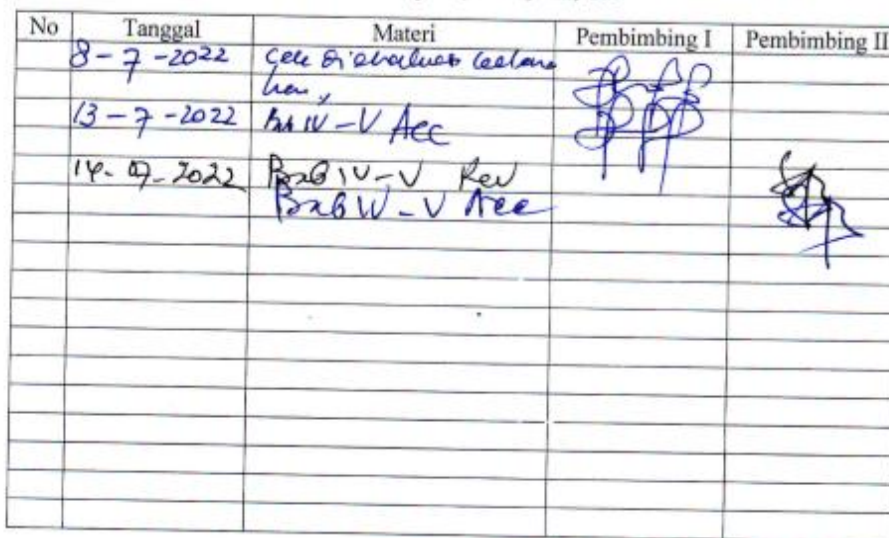 No Tanggal Materi Pembimbing I Pembimbing II
8-7-2022
13-7-2022 Bab IV-V Acc
14-07-2022 Bab IV-V Rev
Bab IV-V Acc